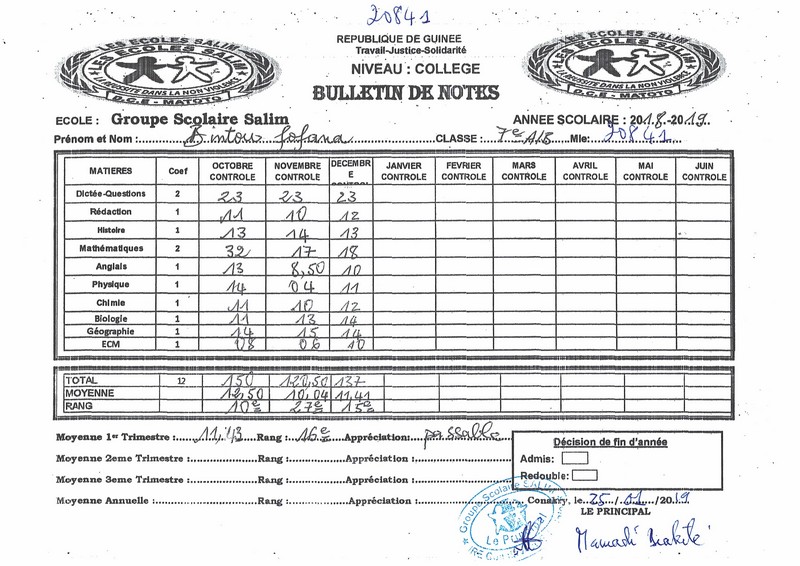 20841
REPUBLIQUE DE GUINEE
Travail-Justice-Solidarité
NIVEAU : COLLEGE
BULLETIN DE NOTES
LES ECOLES SALIM
LES ECOLES SALIM
LA REUSSITE DANS LA NON VIOLENCE
D.C.E - MATOTO
LES ECOLES SALIM
LES ECOLES SALIM
LA REUSSITE DANS LA NON VIOLENCE
D.C.E - MATOTO
ECOLE : Groupe Scolaire Salim ANNEE SCOLAIRE : 2018-2019
Prénom et Nom : Bintou Fofana CLASSE : 7e A/B Mle: 20841
MATIERES Coef OCTOBRE CONTROLE NOVEMBRE CONTROLE DECEMBRE CONTROL JANVIER CONTROLE FEVRIER CONTROLE MARS CONTROLE AVRIL CONTROLE MAI CONTROLE JUIN CONTROLE
Dictée-Questions 2 23 23 23
Rédaction 1 11 10 12
Histoire 1 13 14 13
Mathématiques 2 32 17 18
Anglais 1 13 8,50 10
Physique 1 14 04 11
Chimie 1 11 10 12
Biologie 1 11 13 14
Géographie 1 14 15 14
ECM 1 08 06 10
TOTAL 12 150 120,50 137
MOYENNE 12,50 10,04 11,41
RANG 10e 27e 15e
Moyenne 1er Trimestre : 11,43 Rang : 16e Appréciation: passable
Moyenne 2eme Trimestre : Rang : Appréciation :
Moyenne 3eme Trimestre : Rang : Appréciation :
Moyenne Annuelle : Rang : Appréciation :
Décision de fin d'année
Admis:
Redouble:
Conakry, le 25/01/2019
LE PRINCIPAL
Groupe Scolaire SALIM
Le Principal
Mamadi Diakité